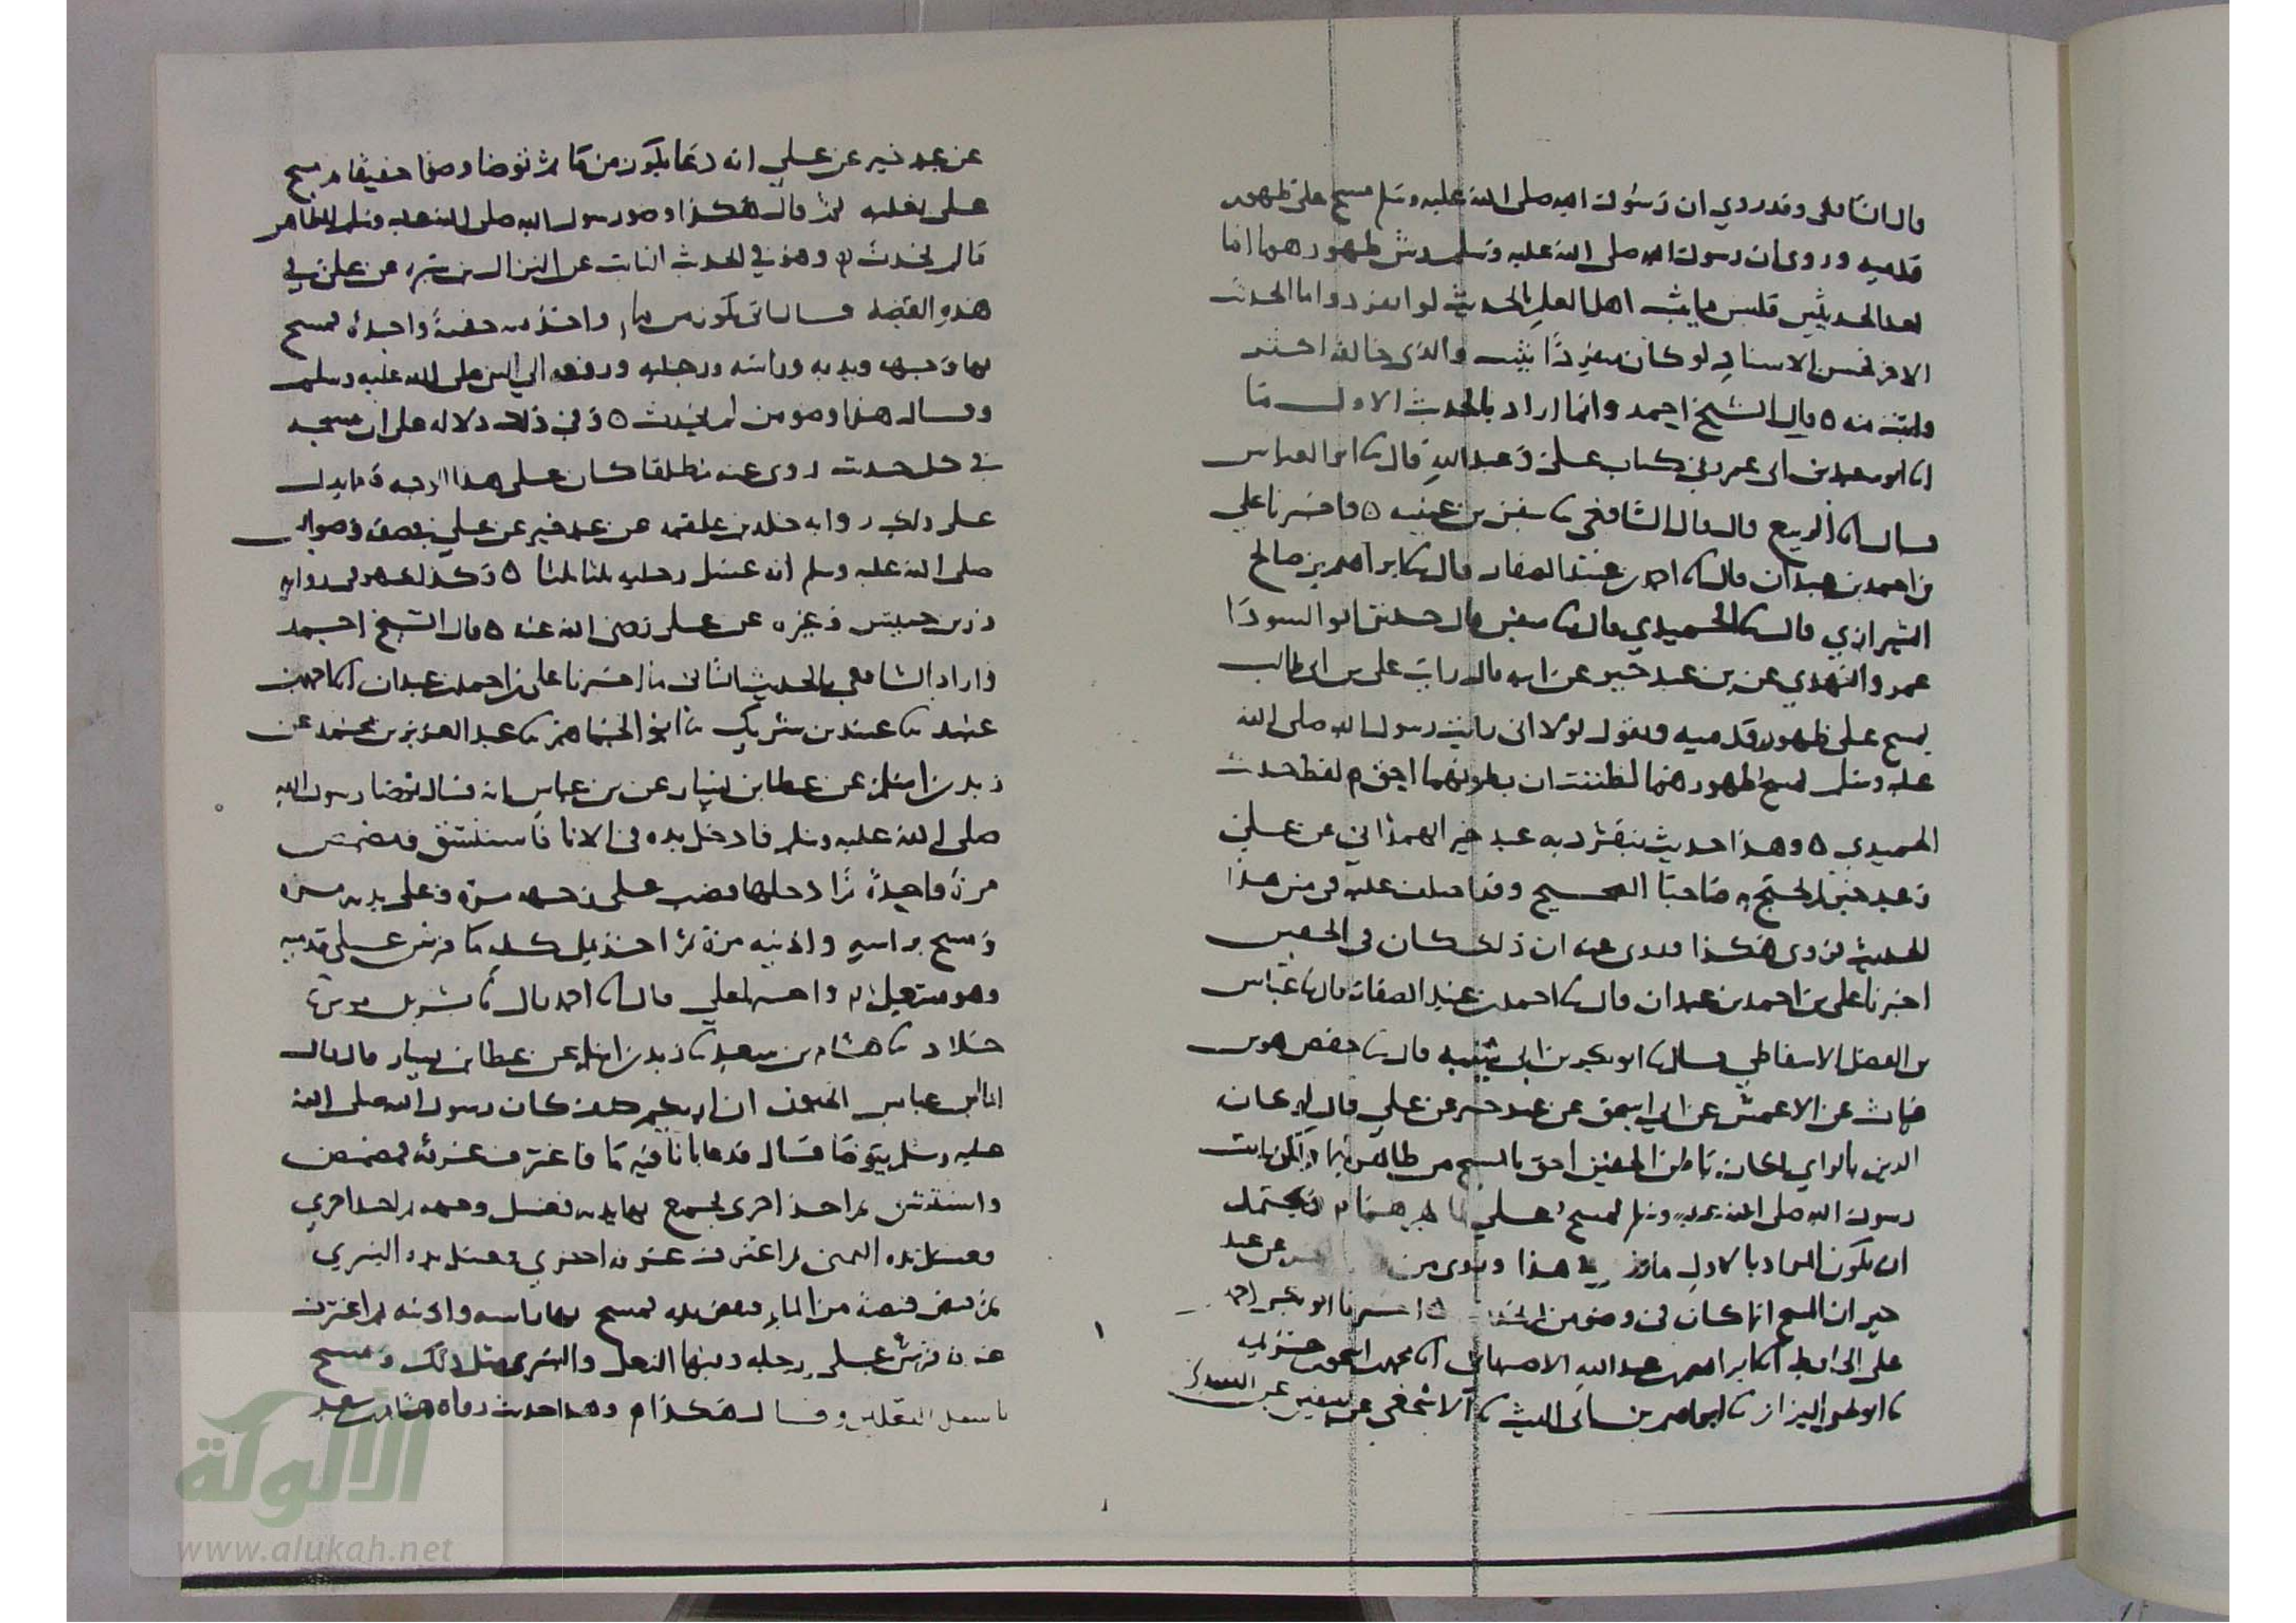 قال الشافعي وقد روي ان رسول الله صلى الله عليه وسلم مسح على ظهور
قدميه وروى ان رسول الله صلى الله عليه وسلم رش ظهورهما
احد الحديثين فليس مما يثبت اهل العلم بالحديث لو انفرد واما الحديث
الاخر فحسن الاسناد لو كان منفردا ثبت والذي خالفه اكثر
واثبت منه ٥ قال الشيخ احمد وانما اراد بالحديث الاول ما
انا ابو سعيد بن ابى عمرو فى كتاب على وعبد الله قال ثنا ابو العباس
قال انا الربيع قال قال الشافعي نا سفين بن عيينه ٥ واخبرنا علي
بن احمد بن عبدان قال نا احمد بن عبيد الصفار قال ثنا ابراهيم بن صالح
الشيرازي قال ثنا الحميدي قال نا سفين قال حدثنى ابو السودا
عمرو النهدي عن بن عبد خير عن ابيه قال رايت على بن ابى طالب
يمسح على ظهور قدميه ويقول لولا انى رايت رسول الله صلى الله
عليه وسلم مسح ظهورهما لظننت ان بطونهما احق م لفظ حديث
الحميدى ٥ وهذا حديث يتفرد به عبد خير الهمذاني عن علي
وعبد خير لم يحتج به صاحبا الصحيح وقد اختلف عليه فى متن هذا
الحديث فروى هكذا وروى عنه ان ذلك كان فى الخفين
اخبرنا على بن احمد بن عبدان قال نا احمد بن عبيد الصفار قال نا عباس
بن الفضل الاسفاطي قال نا ابو بكر بن ابى شيبه قال نا حفص هو بن
غياث عن الاعمش عن ابي اسحق عن عبد خير عن علي قال لو كان
الدين بالراي لكان باطن الخفين احق بالمسح من ظاهرهما ولكن رايت
رسول الله صلى الله عليه وسلم مسح على ظاهرهما م ويحتمل
ان يكون المراد بالاول ما فى هذا وروى من عن عبد
خير ان المسح انما كان فى وضو من ٥ اخبرنا ابو بكر احمد
على الحافظ انا ابراهيم بن عبد الله الاصبهانى انا محمد بن اسحق بن خزيمه
نا ابو يحيى البزاز نا ابراهيم بن ابى الليث نا الاشجعي عن سفين عن السدي
عن عبد خير عن علي انه دعا بكوز من ماء ثم توضا وضوا خفيفا و مسح
على نعليه ثم قال هكذا وضو رسول الله صلى الله عليه وسلم للطاهر
ما لم يحدث م وهو في الحديث الثابت عن النزال بن سبره عن علي في
هذه القصه قال اتى بكوز من ماء واخذ منه حفنة واحدة فمسح
بها وجهه ويديه وراسه ورجليه ورفعه الي النبي صلى الله عليه وسلم
وقال هذا وضو من لم يحدث ٥ وفي ذلك دلاله على ان مسحه
في كل حديث روى عنه مطلقا كان على هذا الوجه ومما يدل
على ذلك روايه خالد بن علقمه عن عبد خير عن علي فى صفه وضو النبى
صلى الله عليه وسلم انه غسل رجليه ثلثا ثلثا ٥ وكذلك هو فى روايه
زر بن حبيش وغيره عن على رضى الله عنه ٥ قال الشيخ احمد
واراد الشافعي بالحديث الثانى ما اخبرنا على بن احمد بن عبدان انا احمد بن
عبيد نا عبيد بن شريك نا ابو الجماهر نا عبد العزيز بن محمد عن
زيد بن اسلم عن عطا بن يسار عن بن عباس انه قال توضا رسول الله
صلى الله عليه وسلم فادخل يده فى الانا فاستنشق ومضمض
مرة واحدة ثم ادخلها فصب على وجهه مرة وعلى يديه مره
ومسح براسه واذنيه مرة ثم اخذ مل كفه ما فرش على قدميه
وهو منتعل م واخبرنا على قال نا احمد قال نا بشر بن موسى نا
خلاد نا هشام بن سعد نا زيد بن اسلم عن عطا بن يسار قال قال
لنا ابن عباس اتحبون ان اريكم كيف كان رسول الله صلى الله
عليه وسلم يتوضا قال فدعا بانا فيه ما فاغترف غرفة فمضمض
واستنثر ثم اخذ اخرى فجمع بها يديه فغسل وجهه ثم اخذ اخري
فغسل يده اليمنى ثم اغترف غرفه اخري فغسل يده اليسري
ثم قبض قبضة من الماء فنفض يده فمسح بها راسه واذنيه ثم اغترف
غرفه فرش على رجله وفيها النعل واليسرى مثل ذلك ومسح
باسفل النعلين وقال هكذا م وهذا حديث رواه هشام بن سعد
الألوكة
www.alukah.net